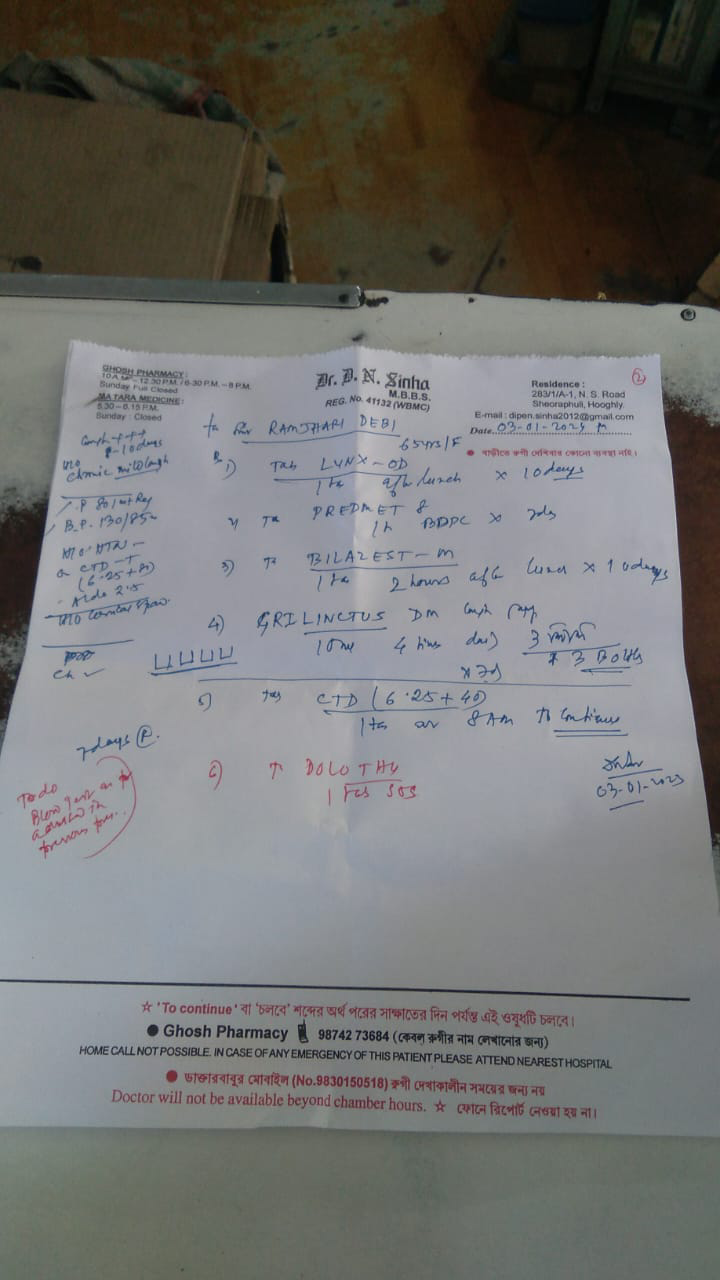 GHOSH PHARMACY :
10 A.M. – 12.30 P.M. / 6-30 P.M. – 8 P.M.
Sunday Full Closed
MA TARA MEDICINE:
5.30 – 6.15 P.M.
Sunday : Closed
Dr. D. N. Sinha
M.B.B.S.
REG. No. 41132 (WBMC)
Residence :
283/1/A-1, N. S. Road
Sheoraphuli, Hooghly.
E-mail : dipen.sinha2012@gmail.com
Date 03-01-2023
2
● বাড়ীতে রুগী দেখিবার কোনো ব্যবস্থা নাই।
RAMJHARI DEBI
65 yrs/F
Cough +++
10 days
Chronic
B.P. 130/85
H/O HTN -
CTD-T
(6.25+40)
Aldo 2.5
1) Tab LYNX-OD
1 tab after lunch x 10 days
2) PREDMET 8
BDPC x 7ds
3) BILAZEST-M
1 tab 2 hours after lunch x 10 days
4) GRILINCTUS DM
4 times daily 3
x 7d
x 3 Bottles
5) Tab CTD (6.25+40)
1 tab 8 AM To Continue
7 days
6) DOLO
1 tab SOS
To do
03-01-2023
☆ 'To continue' বা 'চলবে' শব্দের অর্থ পরের সাক্ষাতের দিন পর্যন্ত এই ওষুধটি চলবে।
● Ghosh Pharmacy 98742 73684 (কেবল রুগীর নাম লেখানোর জন্য)
HOME CALL NOT POSSIBLE. IN CASE OF ANY EMERGENCY OF THIS PATIENT PLEASE ATTEND NEAREST HOSPITAL
● ডাক্তারবাবুর মোবাইল (No.9830150518) রুগী দেখাকালীন সময়ের জন্য নয়
Doctor will not be available beyond chamber hours. ☆ ফোনে রিপোর্ট নেওয়া হয় না।